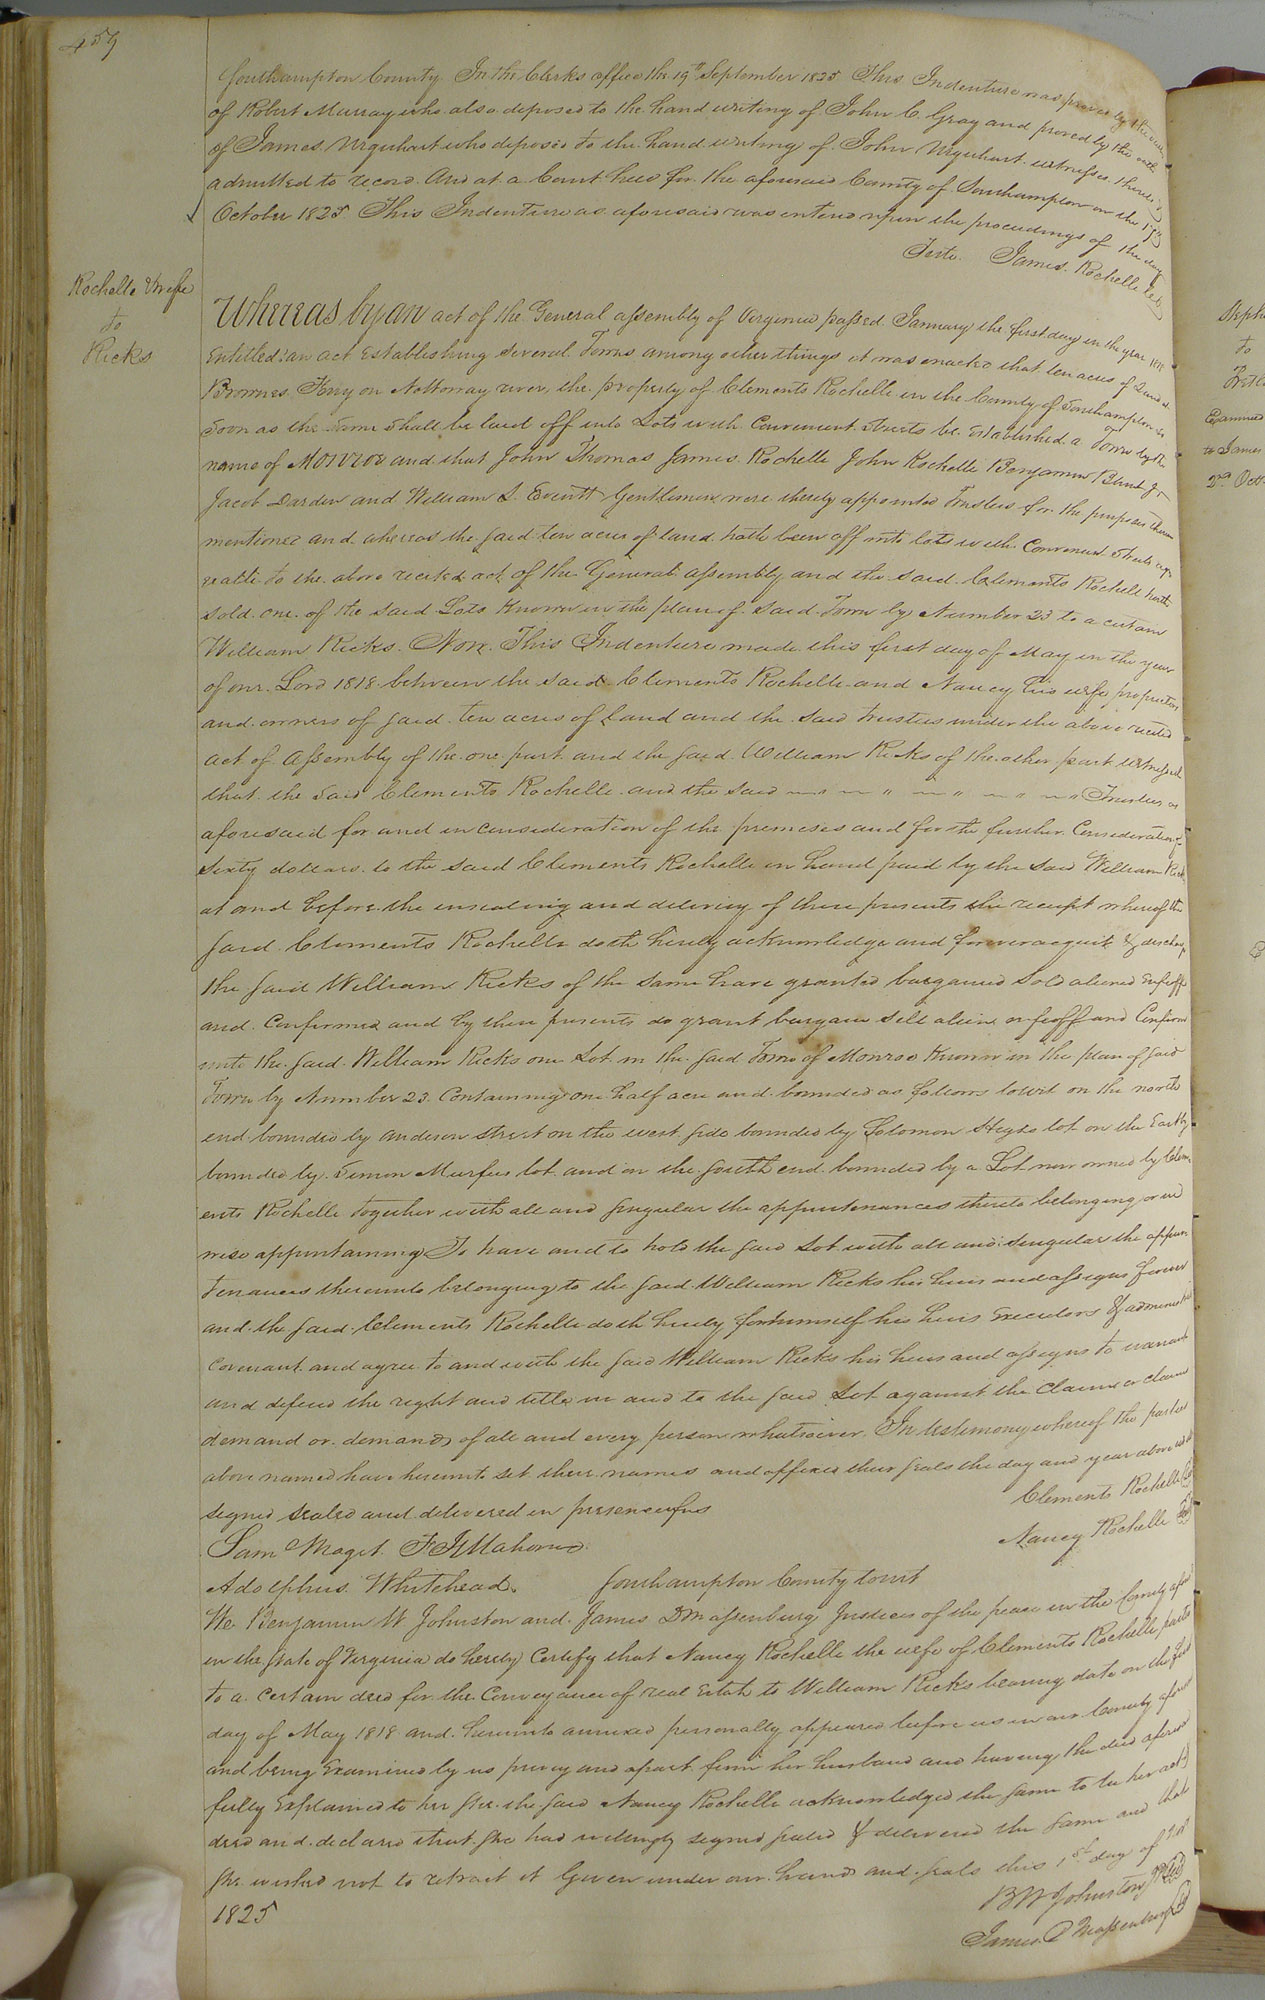 459
Southampton County In the Clerks office the 19th September 1825 This Indenture was proved by the oath
of Robert Murray who also deposed to the hand writing of John C. Gray and proved by the oath
of James Urquhart who deposed to the hand writing of John Urquhart witnesses thereto &
admitted to record. And at a Court held for the aforesaid County of Southampton on the 17th
October 1825 This Indenture as aforesaid was entered upon the proceedings of the day
Teste. James Rochelle Clk
Rochelle & wife
to
Ricks
Whereas by an act of the General assembly of Virginia passed January the first day in the year
Entitled: an act Establishing Several Towns among other things it was enacted that ten acres of Land at
Brownes Ferry on Nottoway river, the property of Clements Rochelle in the County of Southampton so
Soon as the same shall be laid off into Lots with Convenient Streets be Established a Town by the
name of Monroe and that John Thomas James Rochelle John Rochelle Benjamin Blunt Jr
Jacob Darden and William S. Everitt Gentlemen were thereby appointed Trustees for the purposes therein
mentioned and whereas the said ten acres of land hath been off into lots with Convenient Streets
to the above recited act of the General assembly and the said Clements Rochelle hath
sold one of the said Lots Known in the plan of said Town by Number 23 to a certain
William Ricks. Now This Indenture made this first day of May in the year
of our Lord 1818 between the said Clements Rochelle and Nancy his wife proprietors
and owners of said ten acres of land and the said trustees under the above recited
act of Assembly of the one part and the said William Ricks of the other part witnesseth
that the said Clements Rochelle and the said — " — " — " — " — " Trustees as
aforesaid for and in consideration of the premises and for the further Consideration of
Sixty dollars to the said Clements Rochelle in hand paid by the said William Ricks
at and before the ensealing and delivery of these presents the receipt whereof the
said Clements Rochelle doth hereby acknowledge and forever acquit & discharge
the said William Ricks of the same have granted bargained sold aliened Enfeoff
and Confirmed and by these presents do grant bargain sell alien enfeoff and Confirm
unto the said William Ricks one Lot in the said Town of Monroe Known in the plan of said
Town by Number 23 Containing one half acre and bounded as follows towit on the north
end bounded by anderson Street on the west side bounded by Solomon lot on the East by
bounded by Simon Murfees lot and on the south end bounded by a Lot now owned by Clem
ents Rochelle together with all and singular the appurtenances thereto belonging or in
wise appertaining To have and to hold the said Lot with all and singular the appur
tenances thereunto belonging to the said William Ricks his heirs and assigns forever
and the said Clements Rochelle doth hereby for himself his heirs Executors & administrs
covenant and agree to and with the said William Ricks his heirs and assigns to warrant
and defend the right and title in and to the said Lot against the claim or claims
demand or demands of all and every person whatsoever. In testimony whereof the parties
above named have hereunto set their names and affixed their seals the day and year above
signed sealed and delivered in presence of us
Clements Rochelle
Nancy Rochelle
Sam Maget.
Adolphus Whitehead. Southampton County towit
We Benjamin W Johnston and James D Massenburg Justices of the peace in the County afore
in the State of Virginia do hereby Certify that Nancy Rochelle the wife of Clements Rochelle parties
to a certain deed for the Conveyance of real Estate to William Ricks bearing date on the first
day of May 1818 and hereunto annexed personally appeared before us in our County afore
and being Examined by us privy and apart from her husband and having the deed aforesd
fully Explained to her she the said Nancy Rochelle acknowledged the same to be her act &
deed and declared that she had willingly signed sealed & delivered the same and that
she wished not to retract it Given under our hands and seals this 1st day of
1825
B W Johnston
James D Massenburg
Steph
to
Examined
to James
2nd Octr